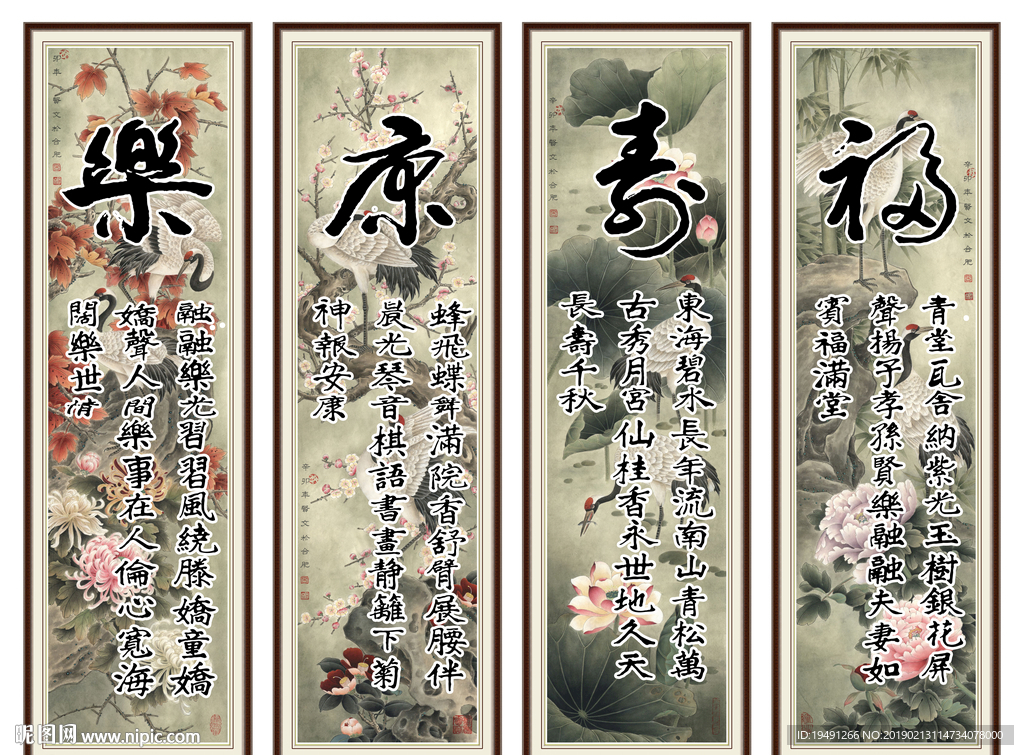 福
青堂瓦舍納紫光玉樹銀花屏
聲揚子孝孫賢樂融融夫妻如
賓福滿堂
辛卯年醫文於合肥
壽
東海碧水長年流南山青松萬
古秀月宮仙桂香永世地久天
長壽千秋
康
蜂飛蝶舞滿院香舒臂展腰伴
晨光琴音棋語書畫靜籬下菊
神報安康
樂
融融樂花習習風繞膝嬌童嬌
嬌聲人間樂事在人倫心寬海
闊樂世情
昵图网 www.nipic.com
ID:19491266 NO:20190213114734078000